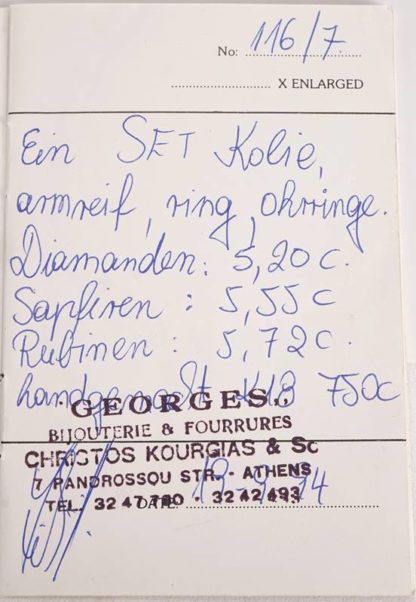 No: 116/7
X ENLARGED
Ein SET Kolie,
armreif, ring, ohrringe.
Diamanden: 5,20 c.
Sapfiren : 5,55 c
Rubinen : 5,72 c.
handgemacht K18 750c
GEORGES,,
BIJOUTERIE & FOURRURES
CHRISTOS KOURGIAS & Sc
7 PANDROSSOU STR. - ATHENS
TEL. 32 47 780 - 32 42 493
DATE: